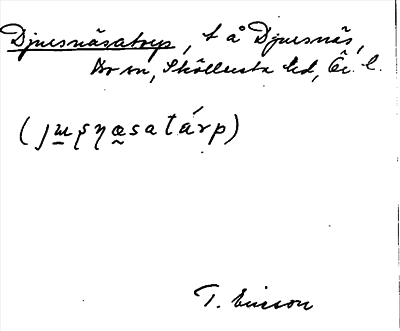 Djursnäsatorp, t å Djursnäs,
sn, Sköllersta hd, Ör. l.
(ȷɯʂƞœsatárp)
T. Ericson